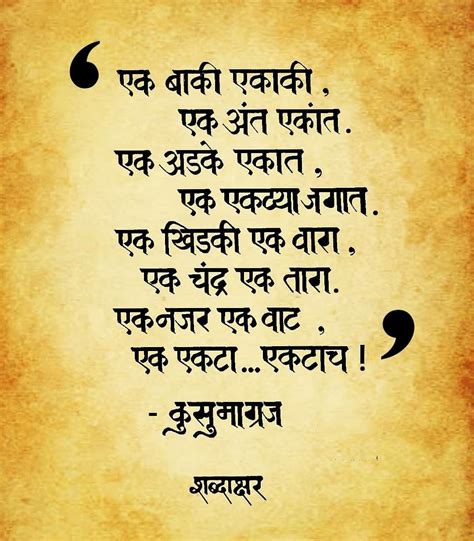 ‘
एक बाकी एकाकी ,
एक अंत एकांत.
एक अडके एकात ,
एक एकट्या जगात.
एक खिडकी एक वारा ,
एक चंद्र एक तारा.
एक नजर एक वाट ,
एक एकटा...एकटाच !
’
- कुसुमाग्रज
शब्दाक्षर